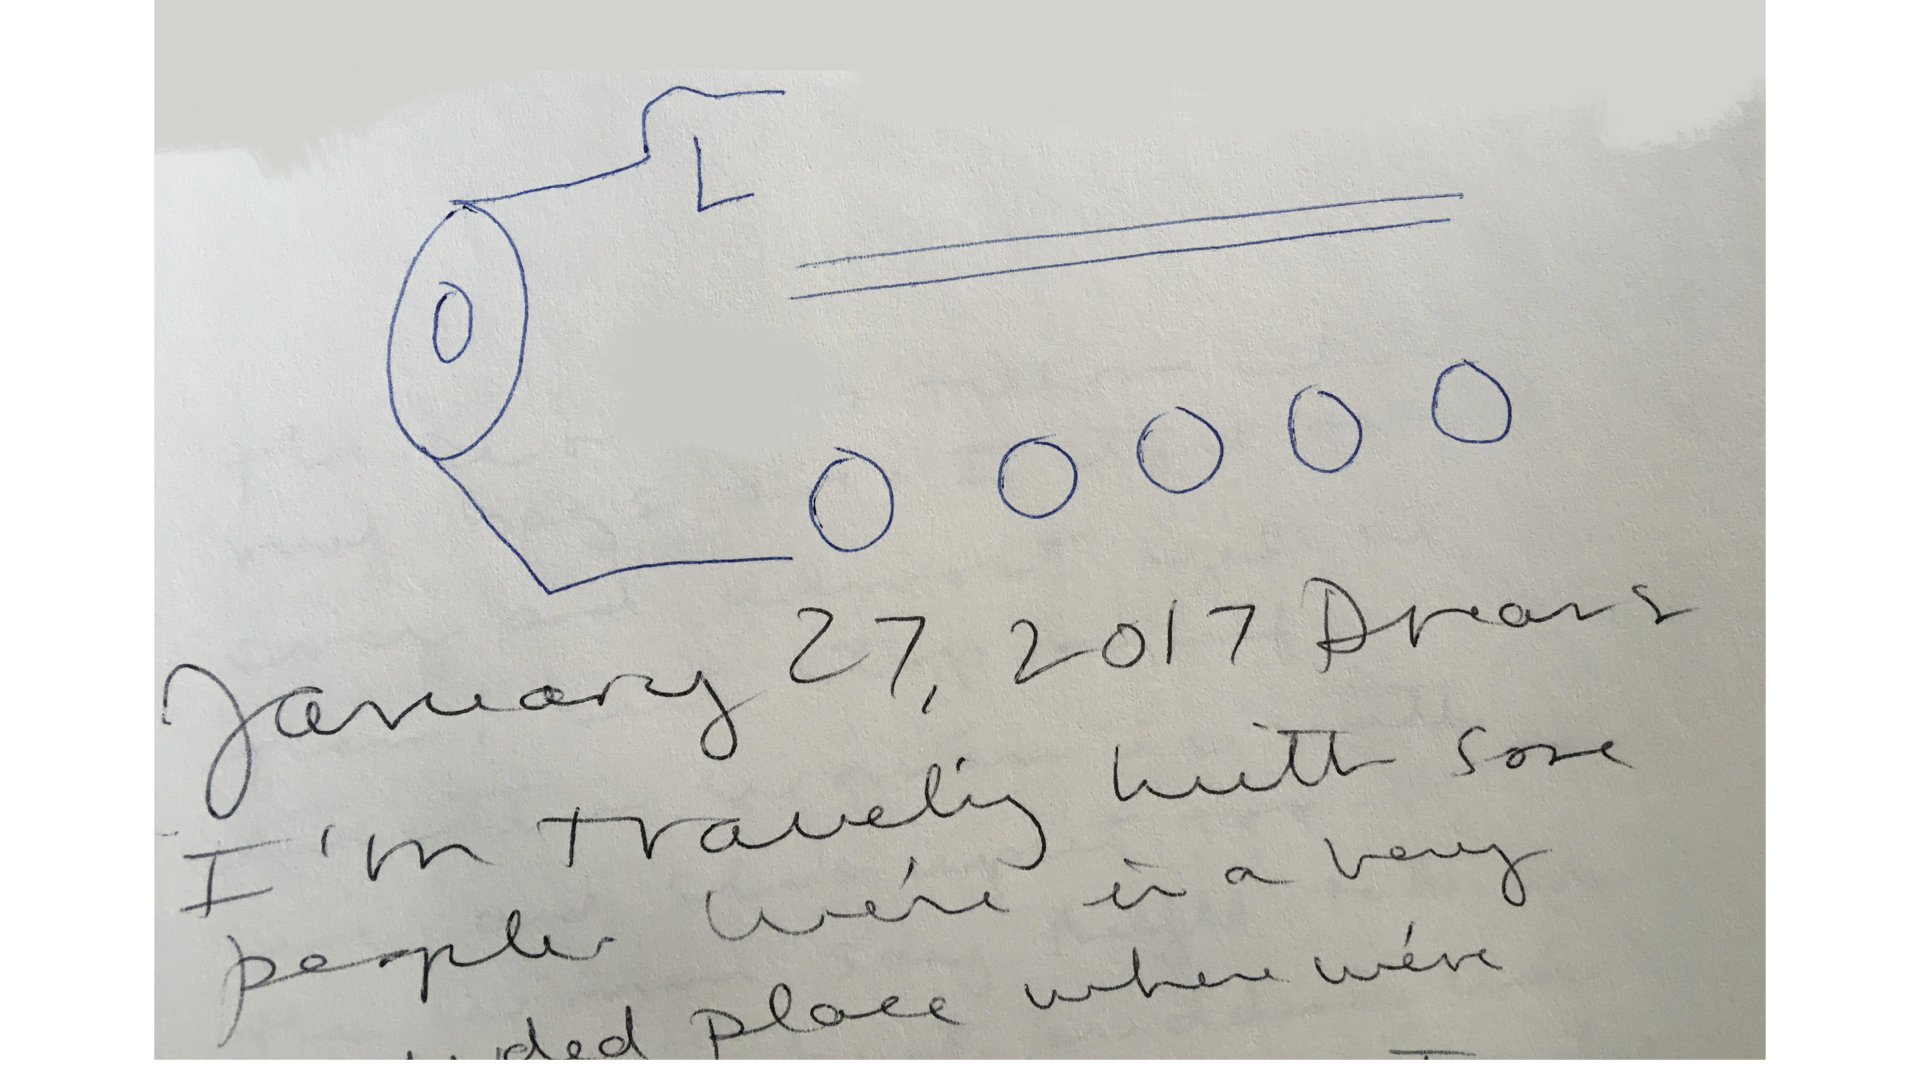 January 27, 2017 Dreams
I'm traveling with some
people. We're in a very
place where we're